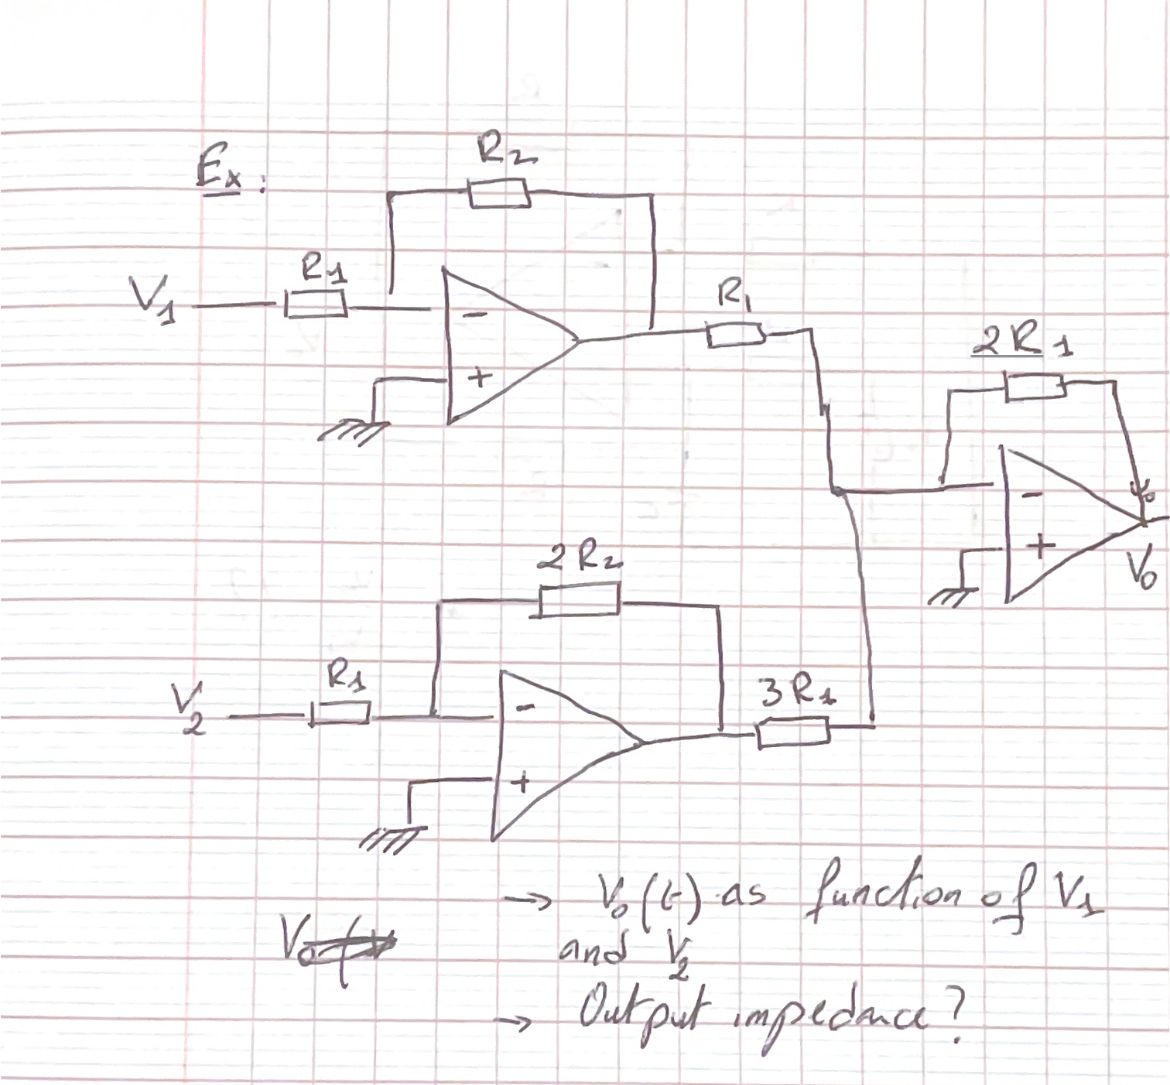 Ex:
R2
V1
R1
-
+
R1
2R1
-
+
Vo
2R2
V2
R1
-
+
3R1
→ Vo(t) as function of V1
and V2
→ Output impedance?